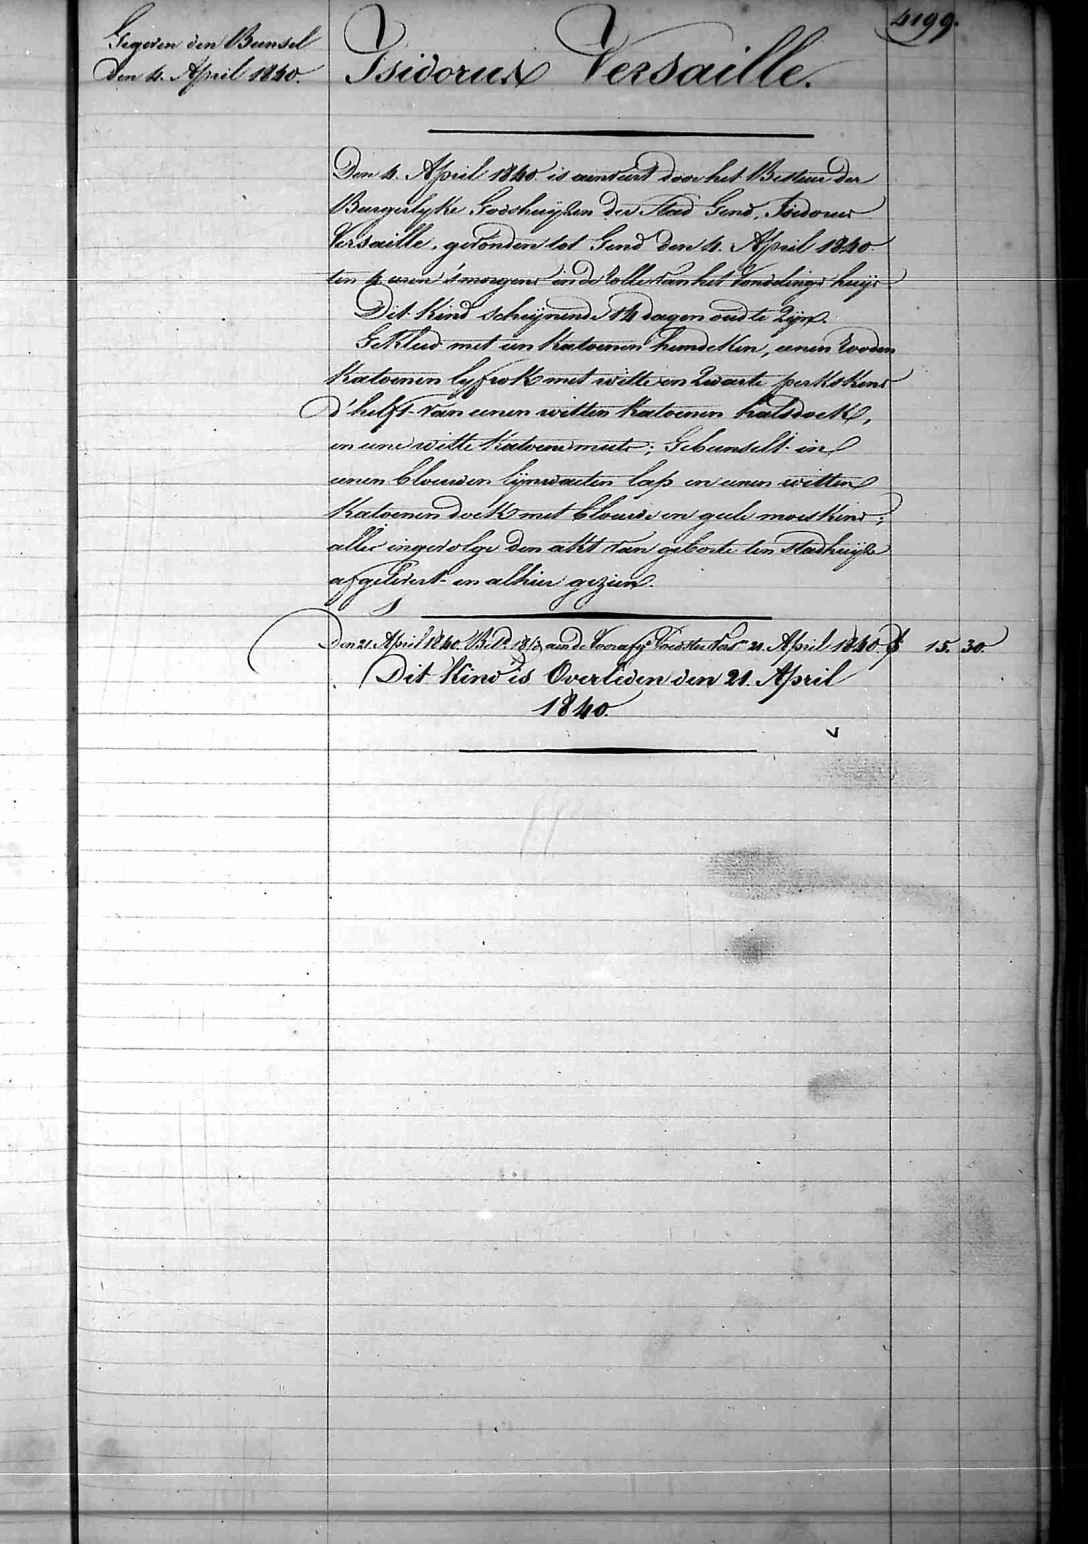 4199.
Gegeven den Bunsel
den 4. April 1840.
Isidorus Versaille.
Den 4. April 1840 is aenveird door het Bestuer der
Burgerlyke Godshuyzen der Stad Gend, Isidorus
Versaille, gevonden tot Gend den 4. April 1840.
ten 4 uren s'morgens in de Rolle van het Vondelings huijs
Dit Kind scheijnende 14 dagen oud te Zijn.
Gekleed met een Katoenen hemdeken, eenen Rooden
Katoenen lyfrok met witte en Zwarte perkskens
d'helft van eenen witten Katoenen halsdoek,
en eene witte Katoene muts; Gebunselt in
eenen blouwen lynwaeten lap en eenen witten
Katoenen doek met blouwe en geele moeskens;
alles ingevolge den akt van geboorte ten Stadhuijse
afgelevert en alhier gezien.
Den 21. April 1840. Bet. aen de Voedster tot 21. April 1840. f 15. 30.
Dit Kind is Overleden den 21. April
1840.